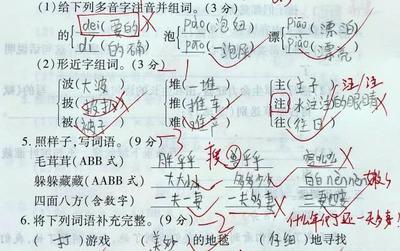 (1)给下列多音字注音并组词。(3分)
的 dei(爱的) 泡 pāo(泡妞) 漂 piāo(漂泊)
dí(的确) pào(一泡尿) piào(漂亮)
(2)形近字组词。(3分)
波(大波) 堆(一堆) 主(主子) 注
披(披挂) 推(推车) 注(水汪汪的眼睛)
被(被子) 难(难产) 往(往日)
5.照样子,写词语。(9分)
毛茸茸(ABB式) 胖乎乎
躲躲藏藏(AABB式) 大大小小 多多少少 白白nènnèn
四面八方(含数字) 一夫多妻 一夫多妻 三妻四妾
6.将下列词语补充完整。(9分) 什么年代了还一夫多妻!
(打)游戏 (美妙)的地毯 (仔细)地寻找